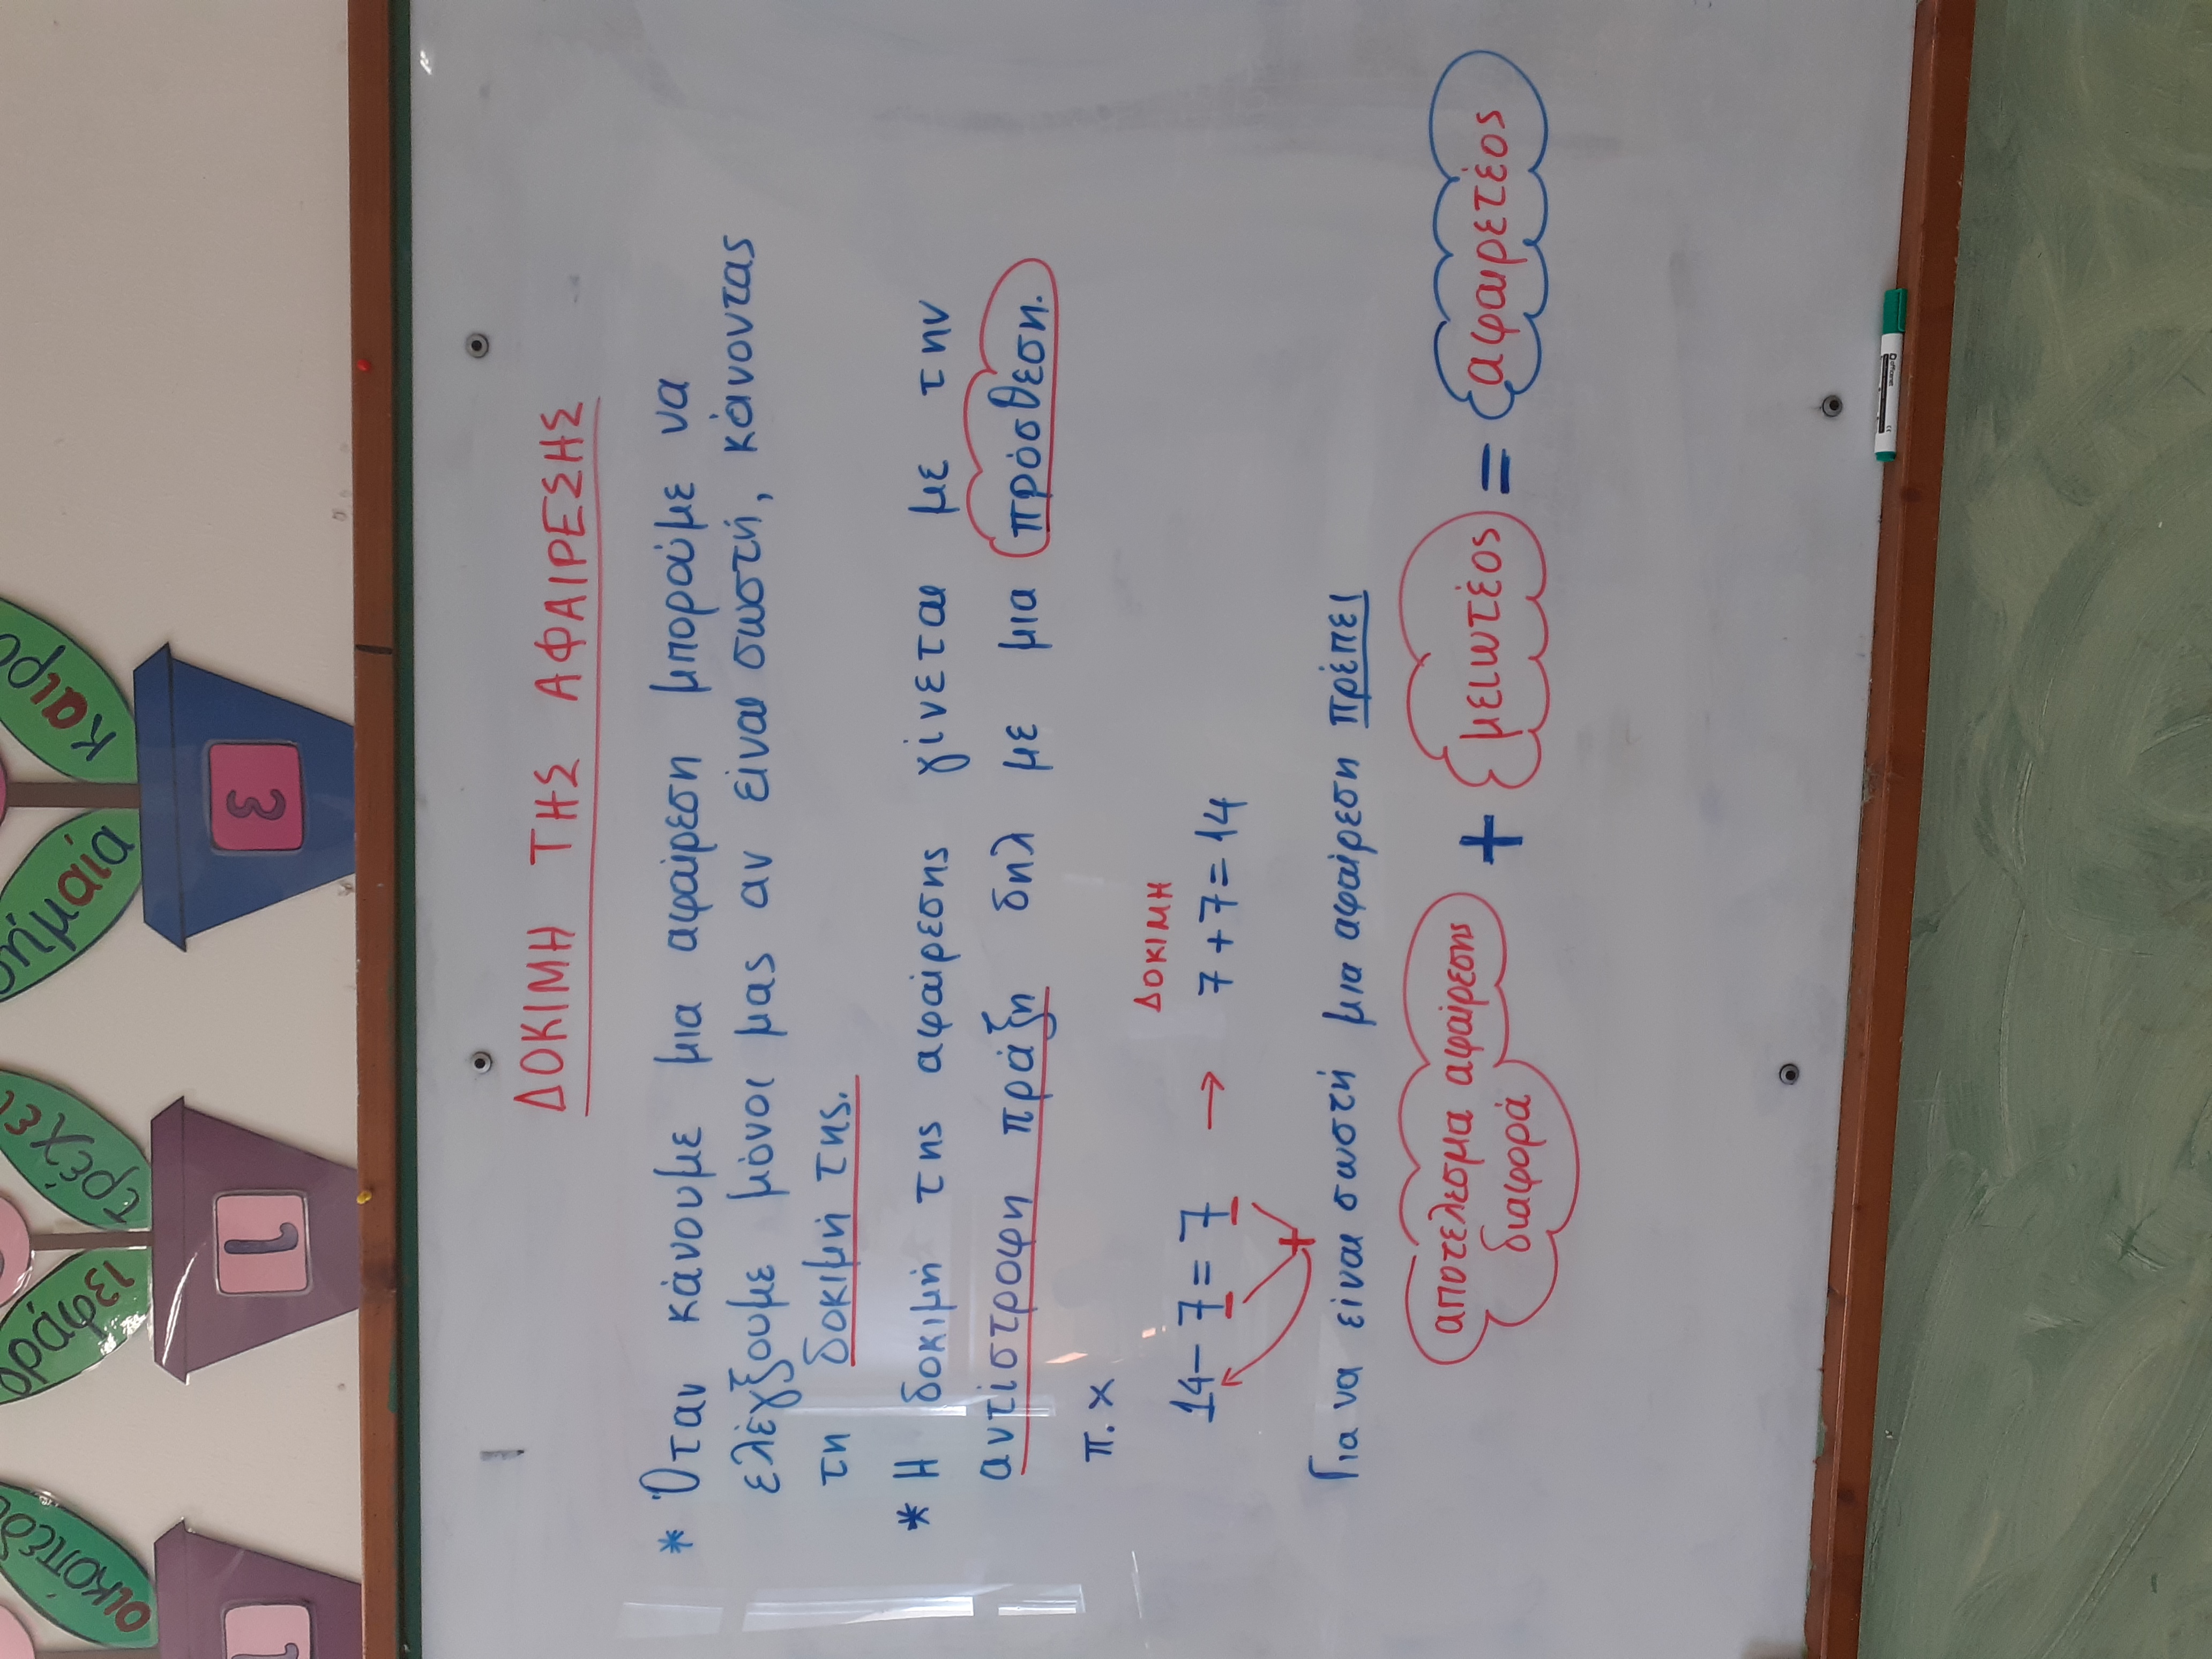 ΔΟΚΙΜΗ ΤΗΣ ΑΦΑΙΡΕΣΗΣ
* Όταν κάνουμε μια αφαίρεση μπορούμε να
ελέγξουμε μόνοι μας αν είναι σωστή, κάνοντας
τη δοκιμή της.
* Η δοκιμή της αφαίρεσης γίνεται με την
αντίστροφη πράξη δηλ με μια πρόσθεση.
π.χ
ΔΟΚΙΜΗ
14-7=7 → 7+7=14
+
Για να είναι σωστή μια αφαίρεση πρέπει
αποτέλεσμα αφαίρεσης
διαφορά + μειωτέος = αφαιρετέος
οικόπεδο
1
γράφει
τρέχει
1
σημαία
καιρό
3